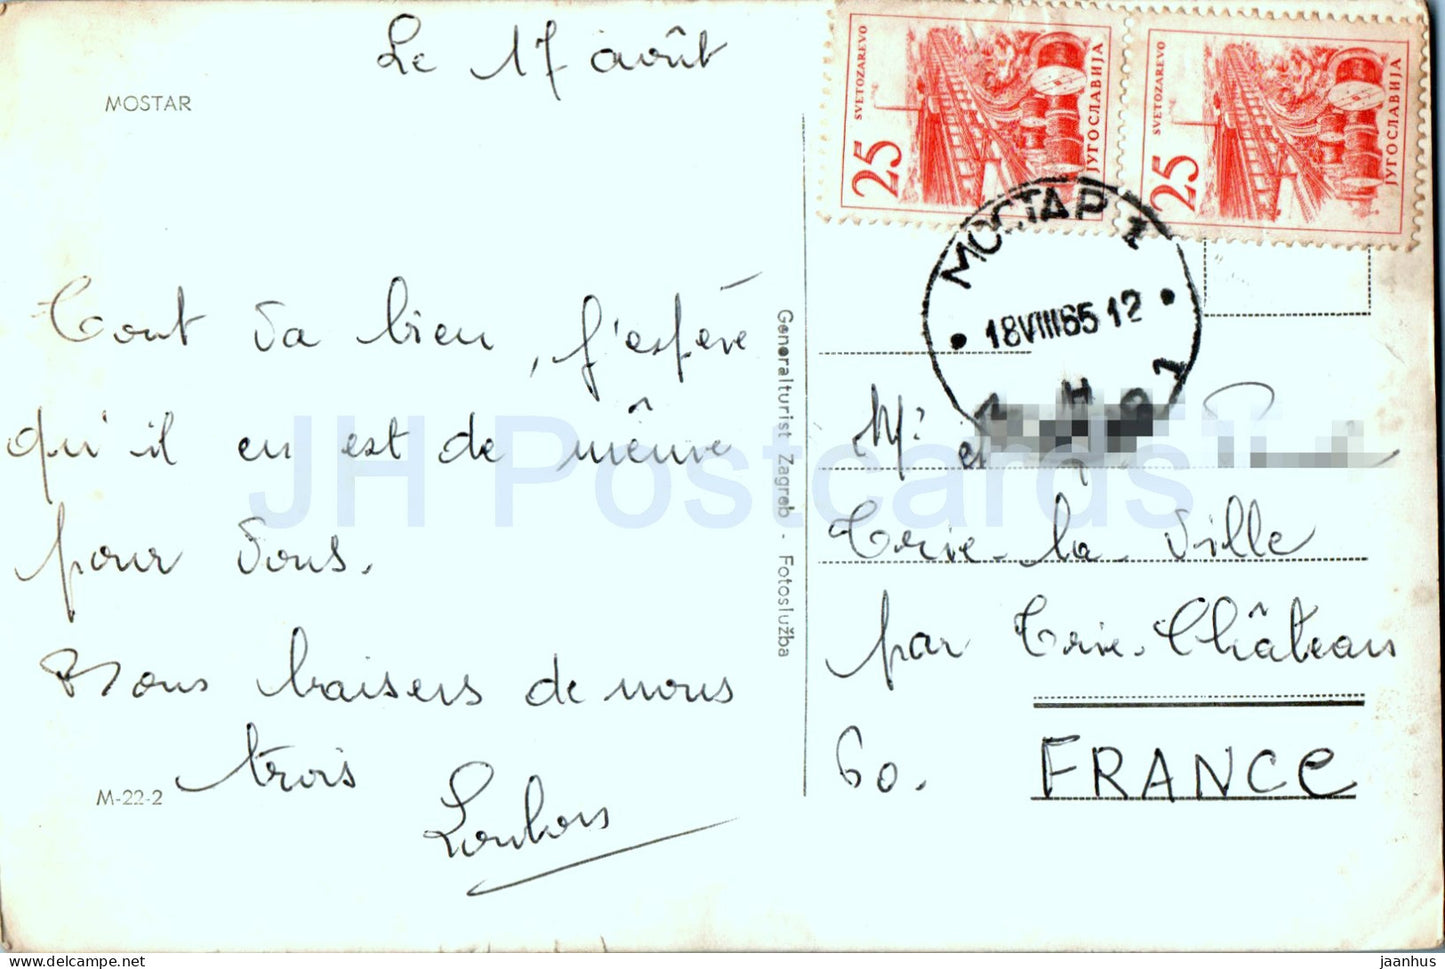 Le 17 août
MOSTAR
Tout va bien, j'espère
qu'il en est de même
pour vous.
Bons baisers de nous
trois
M-22-2
Generalturist Zagreb - Fotoslužba
SVETOZAREVO
25
ЈУГОСЛАВИЈА
SVETOZAREVO
25
ЈУГОСЛАВИЈА
МОСТАР 1
18 VIII 65 12
Mr et
Trie-la-Ville
par Trie-Château
60. FRANCE
JH Postcards
jaanhus